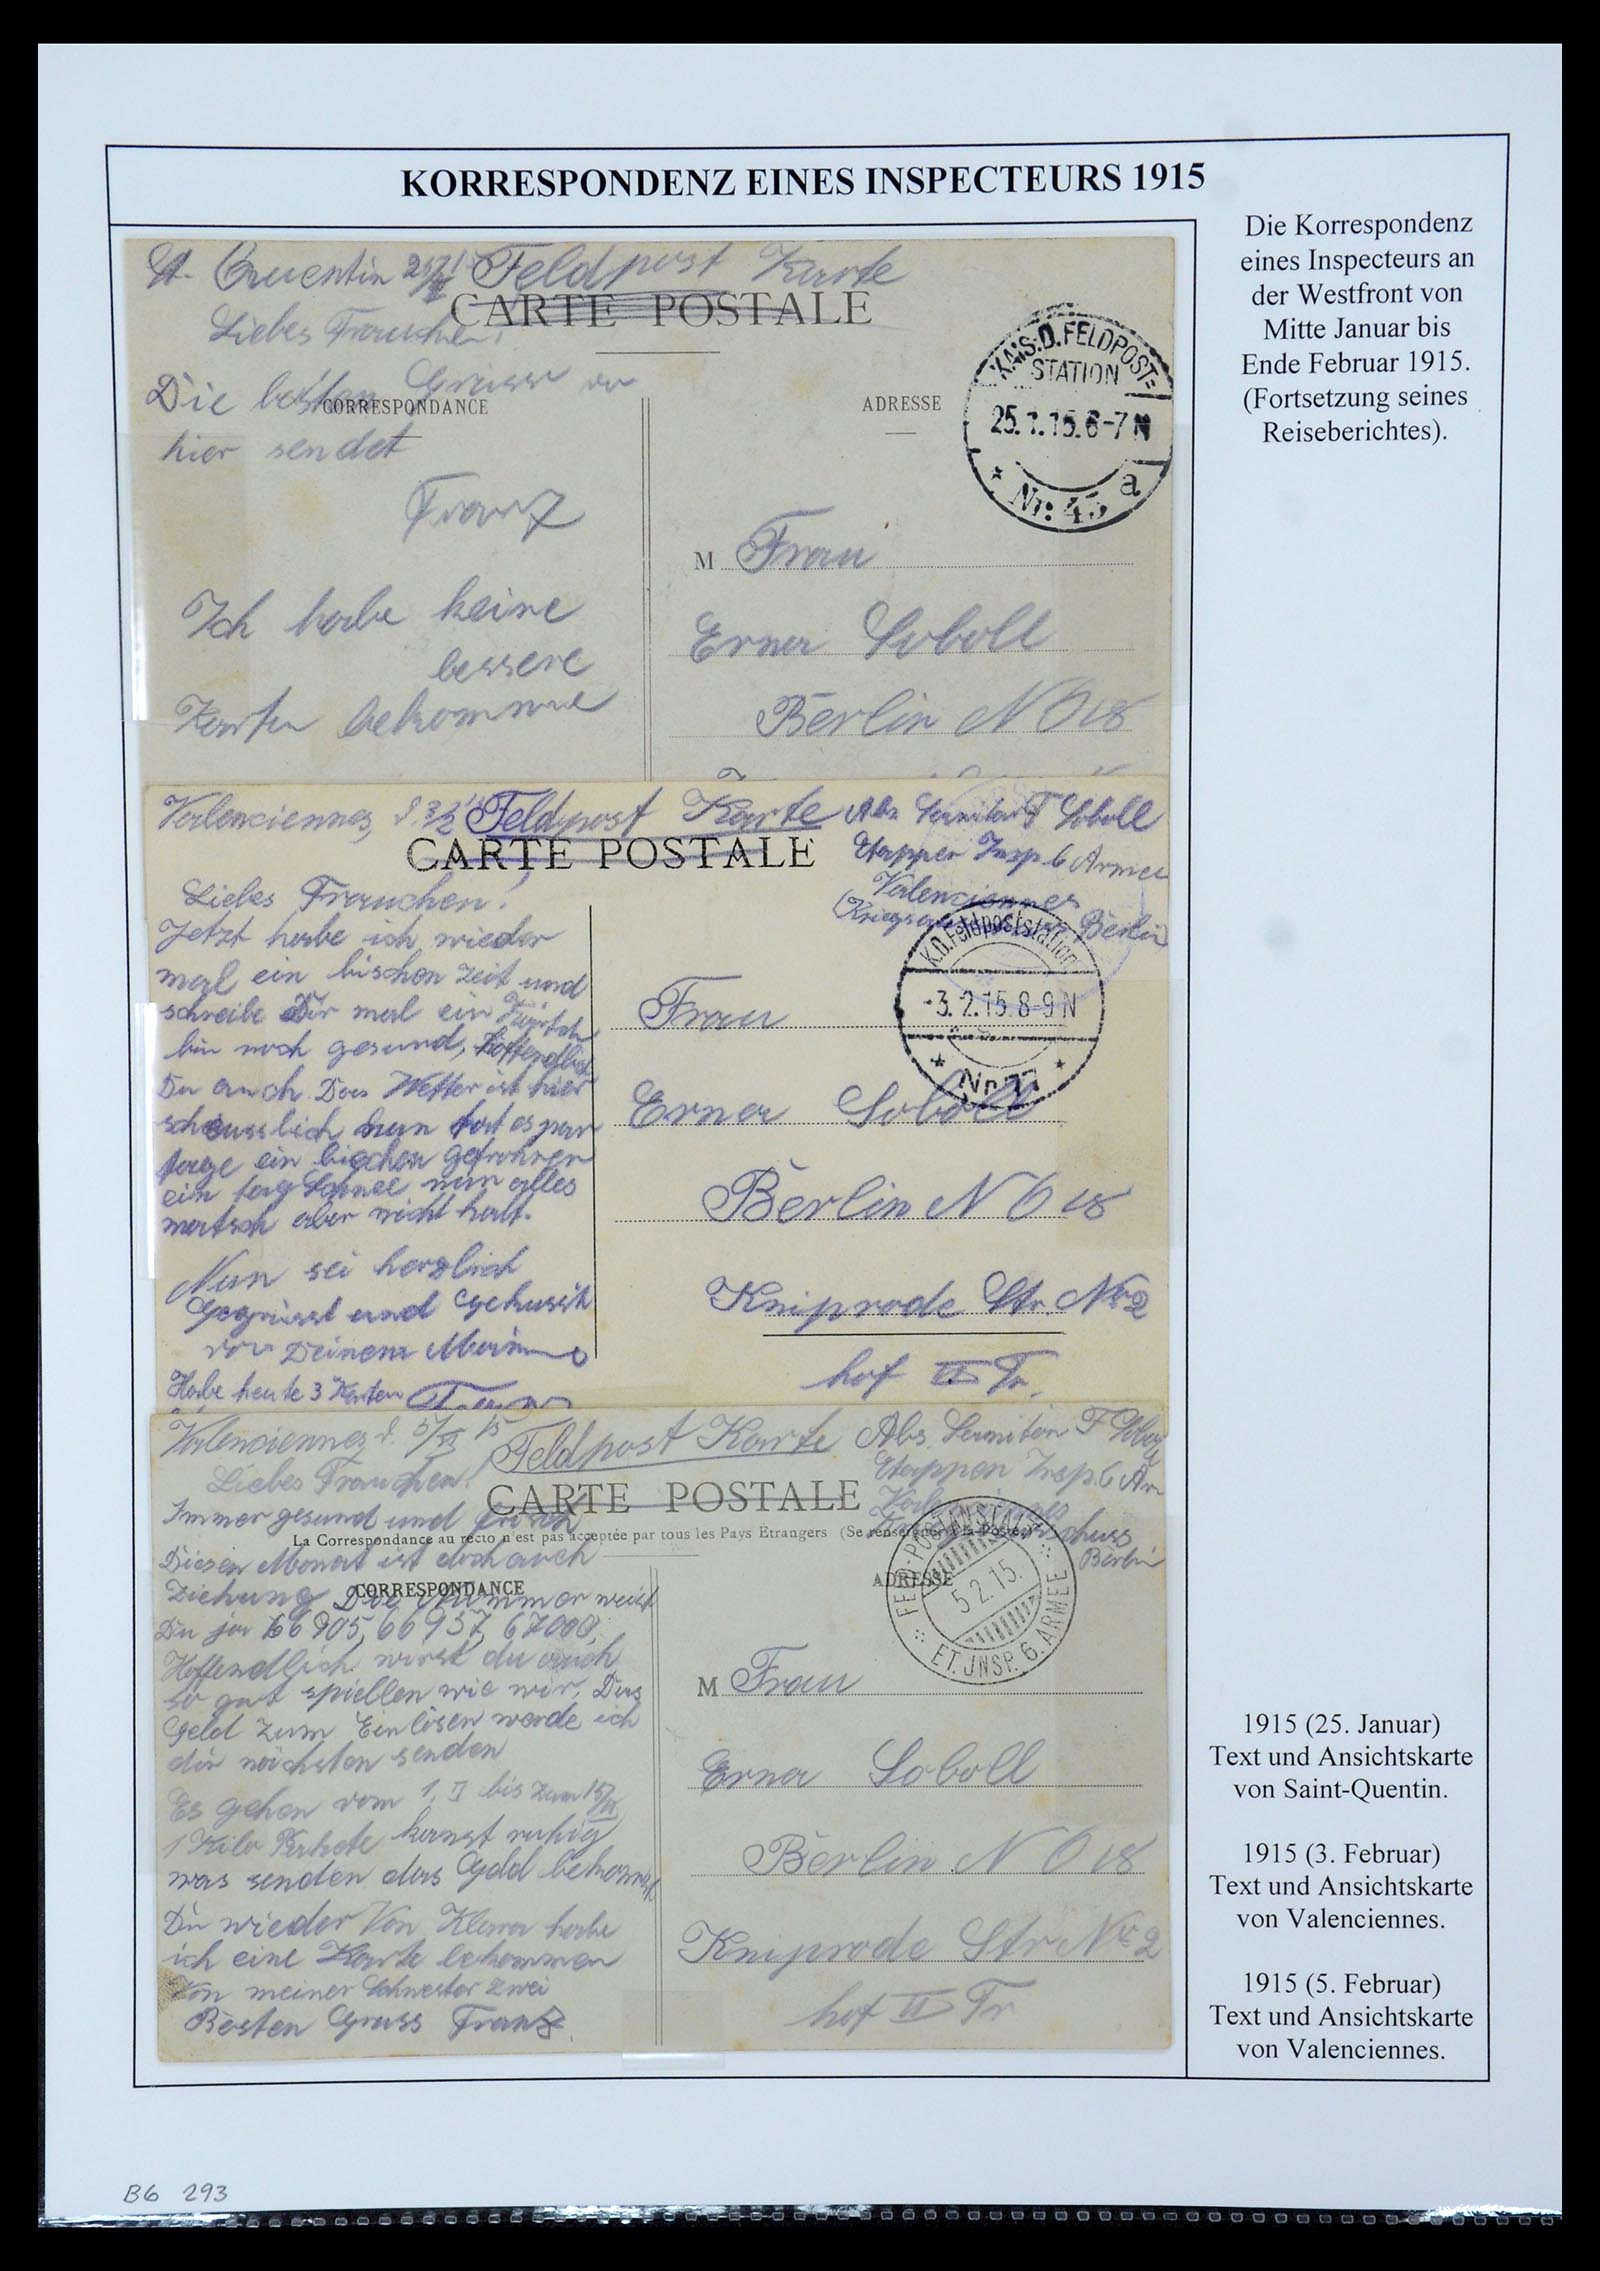 KORRESPONDENZ EINES INSPECTEURS 1915
Die Korrespondenz
eines Inspecteurs an
der Westfront von
Mitte Januar bis
Ende Februar 1915.
(Fortsetzung seines
Reiseberichtes).
St. Quentin
Feldpost Karte
CARTE POSTALE
Liebes Frauchen!
Die besten Grüsse
CORRESPONDANCE
hier sendet
Franz
Ich habe keine
bessere
Karten bekomme
ADRESSE
KAIS. D. FELDPOST=
STATION
25.1.15.6-7N
a
M Frau
Erna Soboll
Berlin NO 18
Valenciennes, d. 3/2
Feldpost Karte
CARTE POSTALE
Abs. Sanitär F Soboll
Etappen Insp. 6 Armee
Valenciennes
Berlin
Liebes Frauchen!
Jetzt habe ich wieder
mal ein bischen Zeit und
schreibe Dir mal ein
bin noch gesund, hoffendlich
Du auch. Das Wetter ist hier
scheusslich nun hat es par
tage ein bischen gefrohren
ein tag Schnee nun alles
matsch aber nicht kalt.
Nun sei herzlich
Gegrüsst und Geküsst
von Deinem Mann
Habe heute 3 Karten
K.D. Feldpoststation
-3.2.15.8-9N
Frau
Erna Soboll
Berlin NO 18
Kniprode Str. No 2
hof II Tr.
Valenciennes d. 5/II 15
Feldpost Karte
Abs. Saniten F Soboll
Etappen Insp. 6
Liebes Frauchen!
CARTE POSTALE
Immer gesund und frisch
La Correspondance au recto n'est pas acceptée par tous les Pays Étrangers (Se renseigner à la Poste.)
Berlin
Diesen Monat ist doch auch
Ziehung Die Nummer weist
CORRESPONDANCE
Du ja 66905, 66937, 67000,
Hoffendlich wirst du auch
so gut spiellen wie wir. Das
Geld zum Einlösen werde ich
dir nächsten senden
Es gehen vom 1. II bis zum 15/II
1 Kilo Pakete kanst ruhig
was senden das Geld bekommst
Du wieder Von Klara habe
ich eine Karte bekommen
Von meiner Schwester zwei
Besten Gruss Franz.
ADRESSE
FELD-POSTANSTALT
5.2.15.
ET. JNSP. 6. ARMEE
M Frau
Erna Soboll
Berlin NO 18
Kniprode Str No 2
hof II Tr
1915 (25. Januar)
Text und Ansichtskarte
von Saint-Quentin.
1915 (3. Februar)
Text und Ansichtskarte
von Valenciennes.
1915 (5. Februar)
Text und Ansichtskarte
von Valenciennes.
B6 293